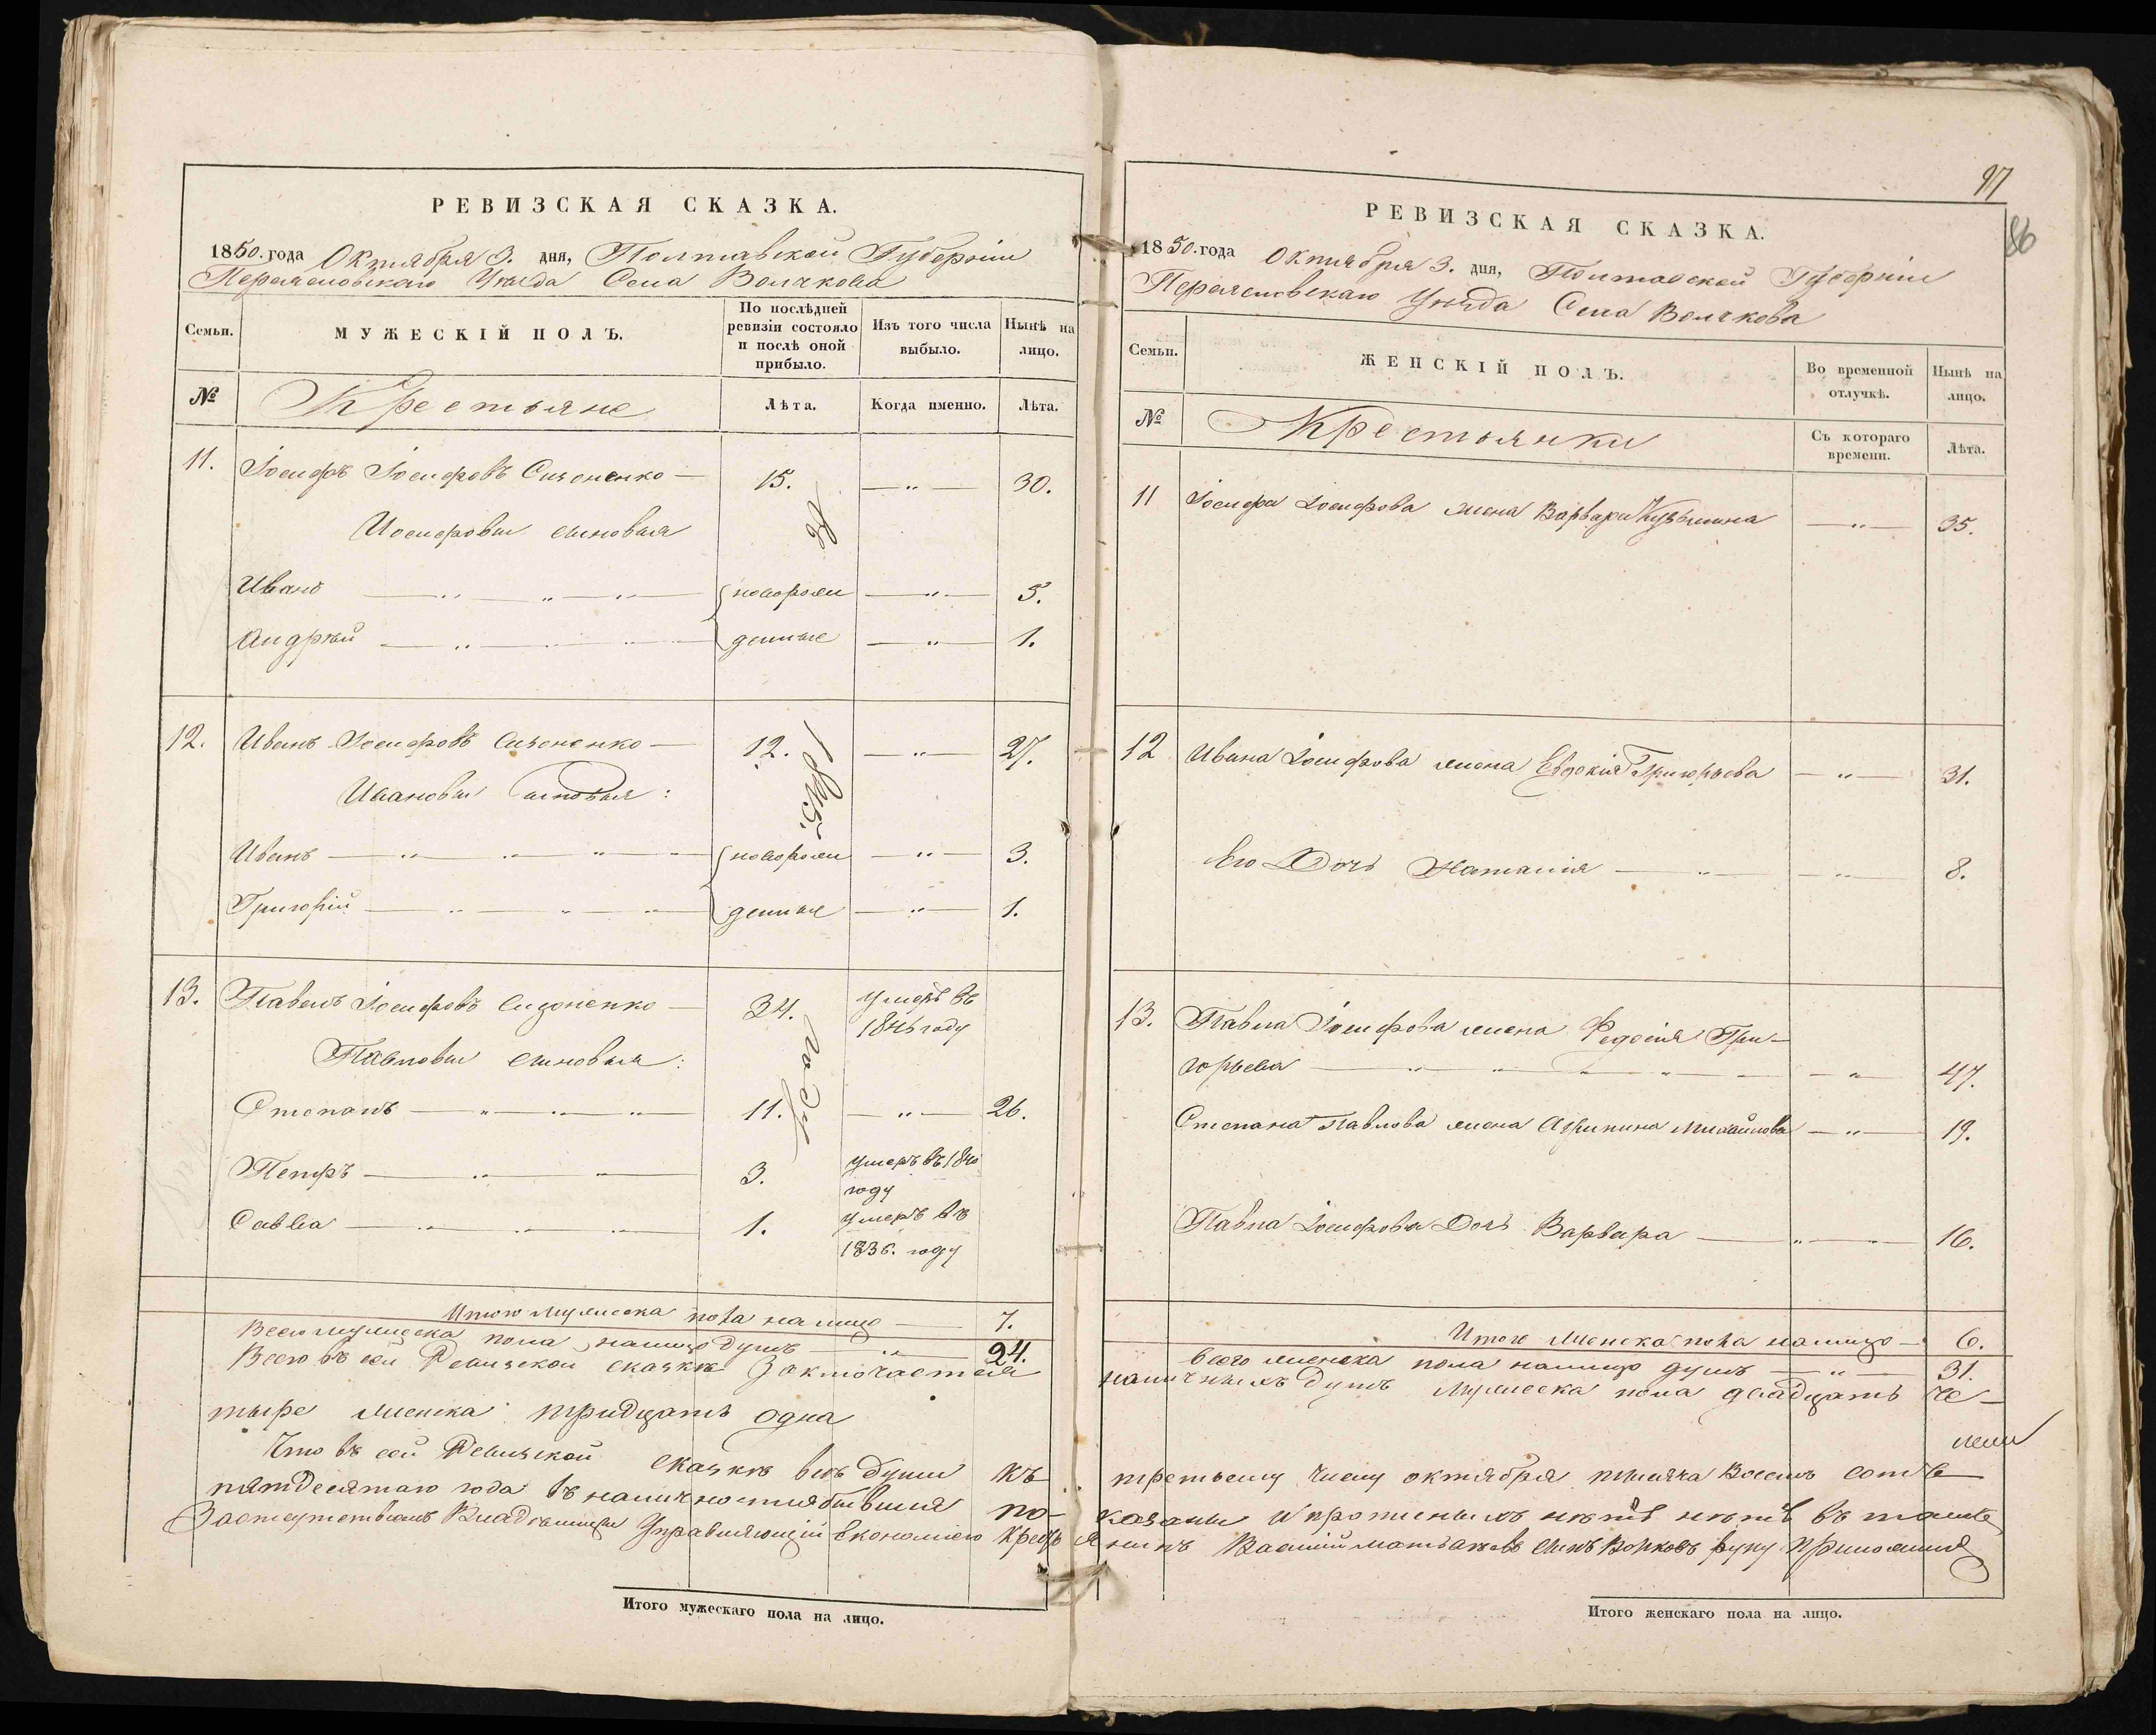 РЕВИЗСКАЯ СКАЗКА.
1850. года Октября 3. дня, Полтавской Губерніи
Переяславскаго Уезда Села Волчкова
Семьи.
МУЖЕСКІЙ ПОЛЪ.
По послѣдней
ревизіи состояло
и послѣ оной
прибыло.
Изъ того числа
выбыло.
Нынѣ на
лицо.
№
Крестьяне
Лѣта.
Когда именно.
Лѣта.
11. Іосифъ Іосифовъ Сизоненко — 15. — „ — 30.
Иосифовы сыновья
Иванъ — новорож — „ — 5.
Андрей — денные — „ — 1.
12. Иванъ Іосифовъ Сизоненко — 12. — „ — 27.
Ивановы сыновья:
Иванъ — новорож — „ — 3.
Григорій — денные — „ — 1.
1845.
году
13. Павелъ Іосифовъ Сизоненко — 34. умеръ въ
184 году
Павловы сыновья:
Степанъ — 11. — „ — 26.
Петръ — 3. умеръ въ 1840
году
Савва — 1. умеръ въ
1836. году
Итого мужеска пола на лицо — 7.
Всего мужеска пола налицо душъ — „ — 24.
Всего въ сей Ревизской сказкѣ Заключается
тыре женска тридцать одна
Что въ сей Ревизской сказкѣ всѣ души къ
пятдесятаго года въ наличности бывшия по-
Владѣлицы Управляющій Економіею Кресть
Итого мужескаго пола на лицо.
97
86
РЕВИЗСКАЯ СКАЗКА.
1850. года Октября 3. дня, Полтавской Губерніи
Переяславскаго Уезда Села Волчкова
Семьи.
ЖЕНСКІЙ ПОЛЪ.
Во временной
отлучкѣ.
Нынѣ на
лицо.
№
Крестьянки
Съ котораго
времени.
Лѣта.
11 Іосифа Іосифова жена Варвара Кузьмина — „ — 35.
12 Ивана Іосифова жена Евдокія Григорьева — „ — 31.
Его Дочь Наталія — „ — 8.
13. Павла Іосифова жена Федосія Гри-
горьева — „ — 47.
Степана Павлова жена Агрипина Михайлова — „ — 19.
Павла Іосифова Дочь Варвара — „ — 16.
Итого женска пола налицо — 6.
Всего женска пола налицо душъ — „ — 31.
наличныхъ душъ мужеска пола двадцать че-
третьему числу октября тысяча восемь сотъ
казаны и прописныхъ нѣтъ въ томъ
янинъ Василій сынъ Волковъ руку приложилъ
Итого женскаго пола на лицо.